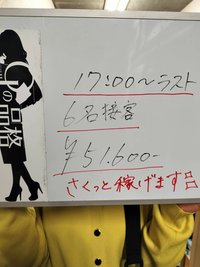 17:00〜ラスト
6名接客
¥51.600-
さくっと稼げます
の品格